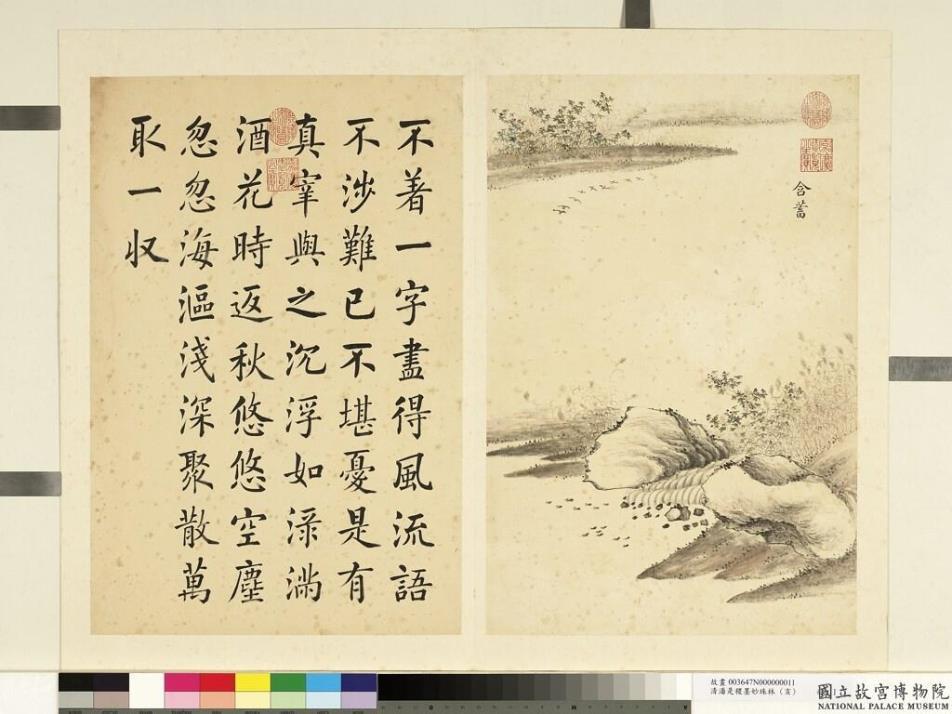 含蓄
不著一字盡得風流語
不涉難已不堪憂是有
真宰與之沉浮如淥滿
酒花時返秋悠悠空塵
忽忽海漚淺深聚散萬
取一収
故畫 003647N000000011
清潘是稷墨妙珠林（亥）
國立故宮博物院
NATIONAL PALACE MUSEUM